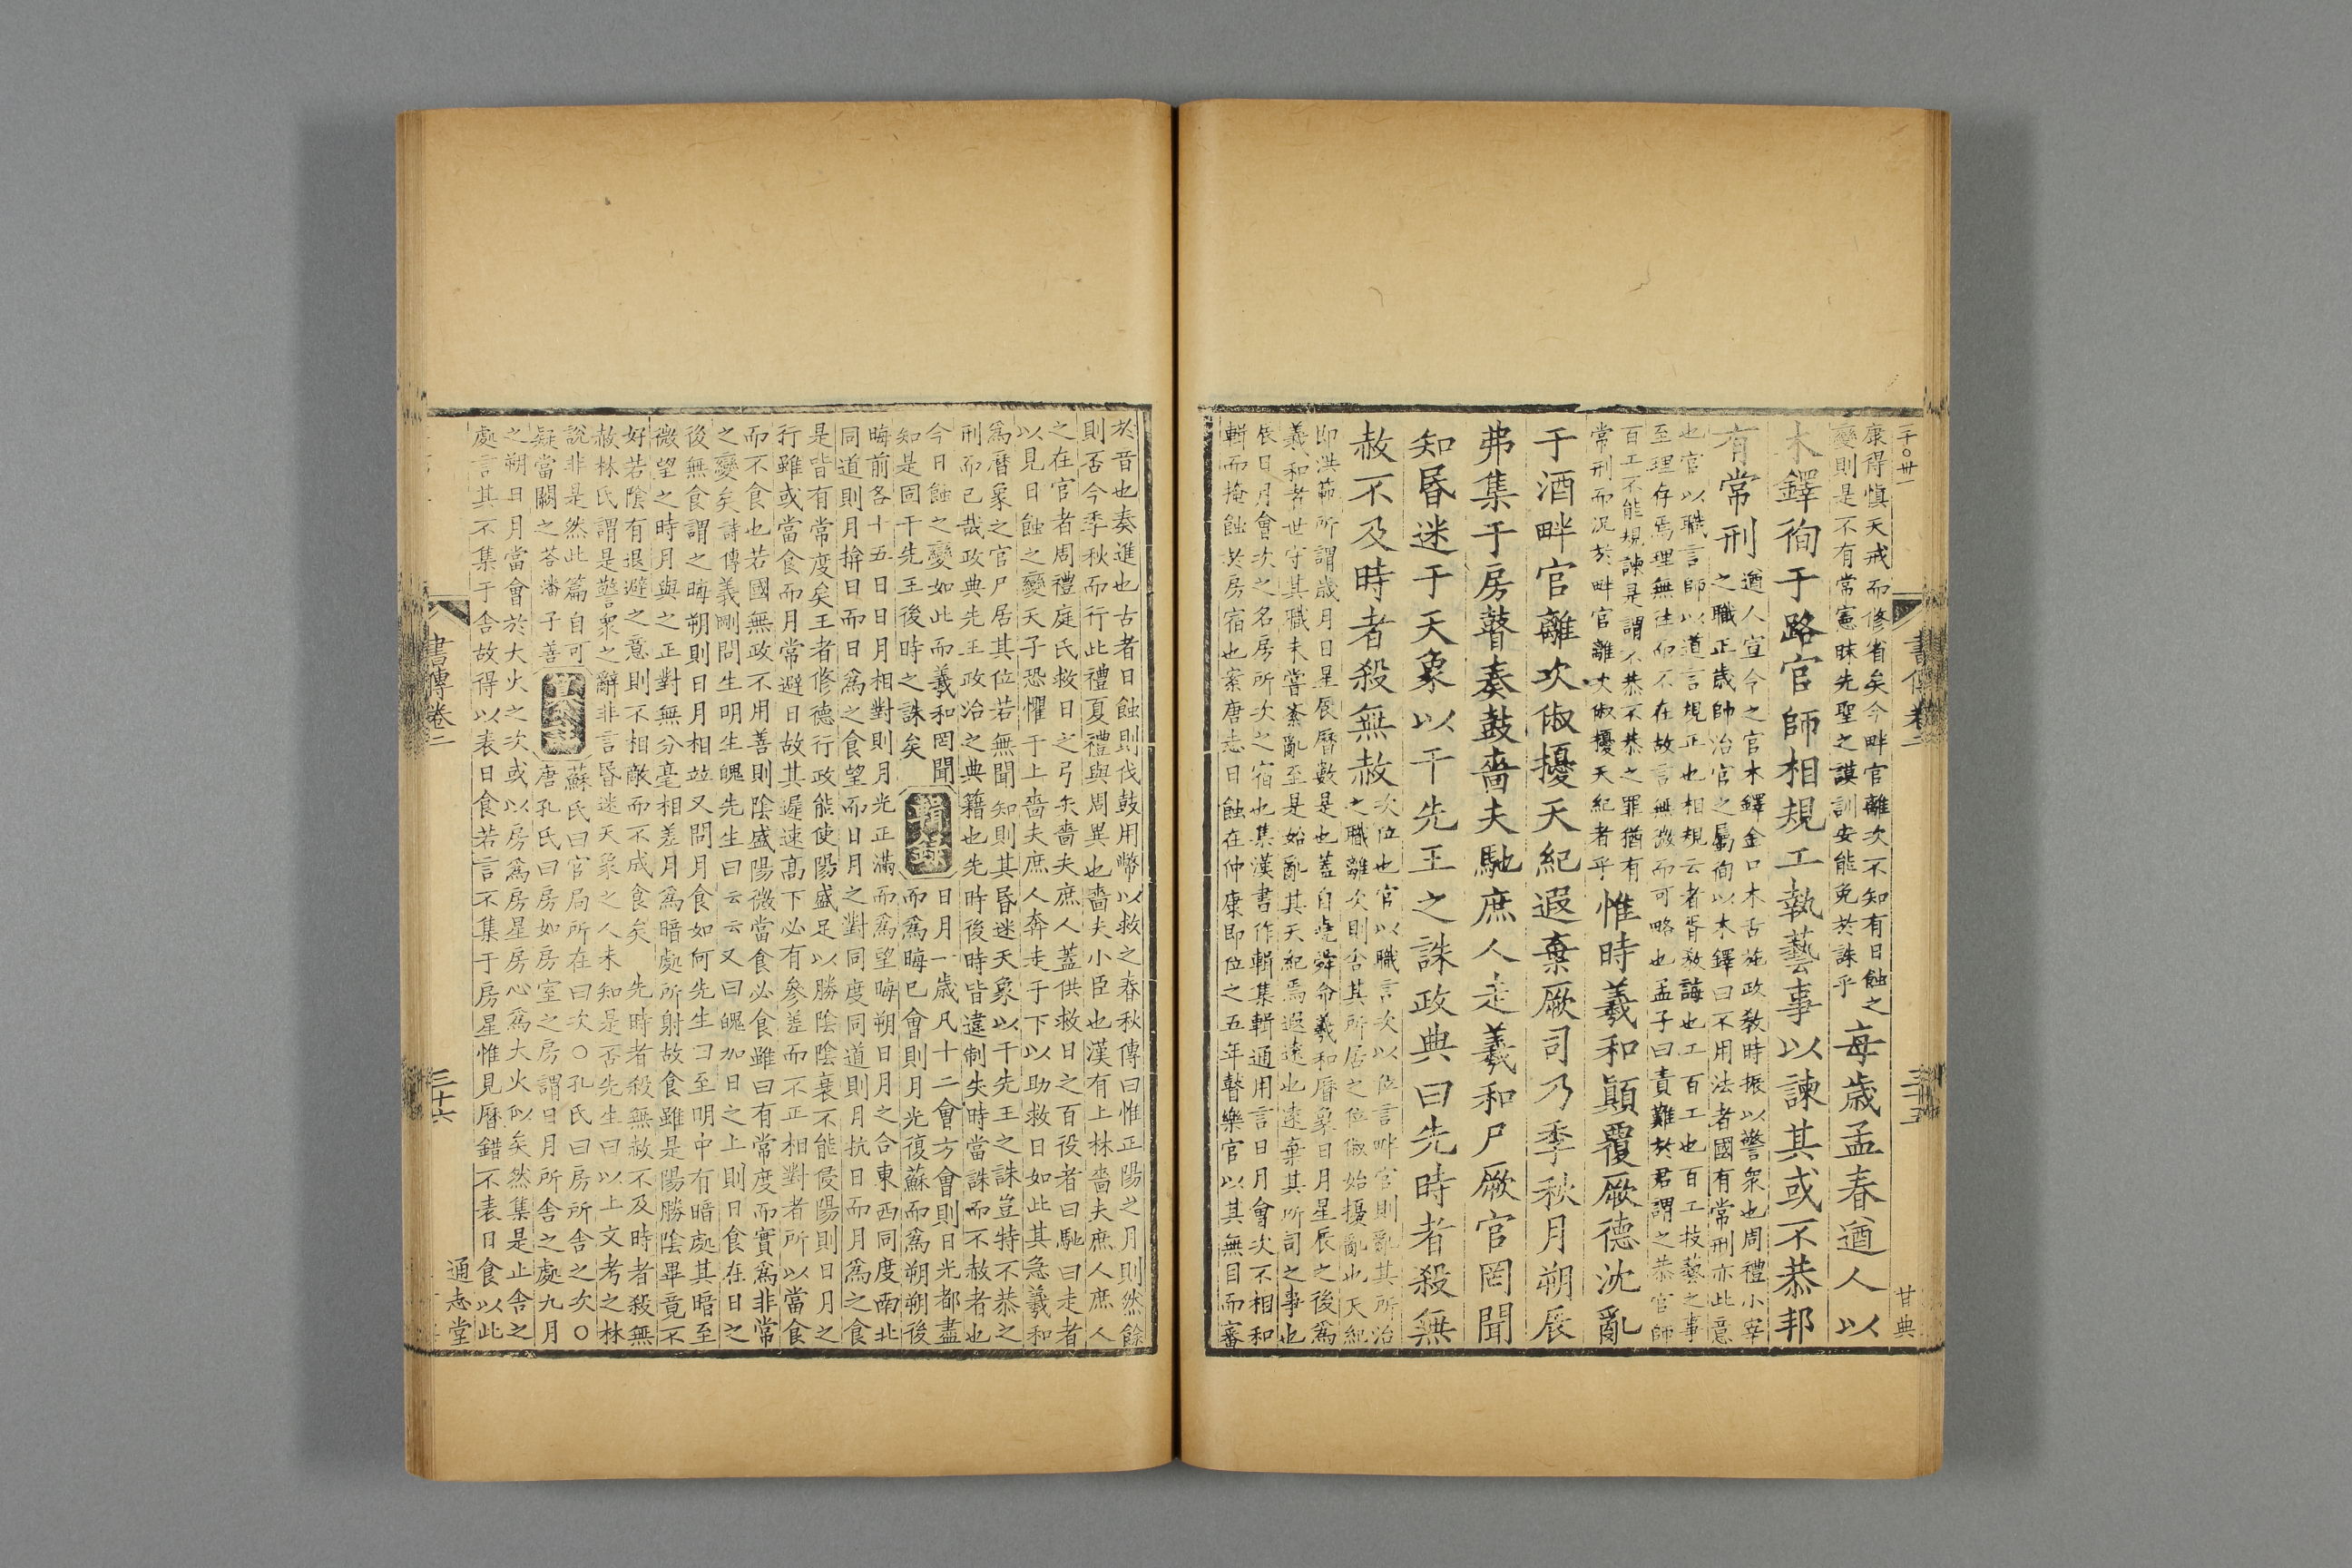 千○卅一
書傳卷二
三十五
甘典
康得慎天戒而修省矣今畔官離次不知有日蝕之
變則是不有常憲昧先聖之謨訓安能免於誅乎
每歲孟春遒人以
木鐸徇于路官師相規工執藝事以諫其或不恭邦
有常刑
遒人宣令之官木鐸金口木舌施政教時振以警衆也周禮小宰
之職正歲帥治官之屬徇以木鐸曰不用法者國有常刑亦此意
也官以職言師以道言規正也相規云者胥教誨也工百工也百工技藝之事
至理存焉理無往而不在故言無微而可略也孟子曰責難於君謂之恭官師
百工不能規諫是謂不恭不恭之罪猶有
常刑而況於畔官離次俶擾天紀者乎
惟時羲和顛覆厥德沈亂
于酒畔官離次俶擾天紀遐棄厥司乃季秋月朔辰
弗集于房瞽奏鼓嗇夫馳庶人走羲和尸厥官罔聞
知昬迷于天象以干先王之誅政典曰先時者殺無
赦不及時者殺無赦
次位也官以職言次以位言畔官則亂其所治
之職離次則舍其所居之位俶始擾亂也天紀
即洪範所謂歲月日星辰曆數是也蓋自堯舜命羲和曆象日月星辰之後爲
羲和者世守其職未嘗紊亂至是始亂其天紀焉遐遠也遠棄其所司之事也
辰日月會次之名房所次之宿也集漢書作輯集輯通用言日月會次不相和
輯而掩蝕於房宿也案唐志日蝕在仲康即位之五年瞽樂官以其無目而審
於音也奏進也古者日蝕則伐鼓用幣以救之春秋傳曰惟正陽之月則然餘
則否今季秋而行此禮夏禮與周異也嗇夫小臣也漢有上林嗇夫庶人庶人
之在官者周禮庭氏救日之弓矢嗇夫庶人蓋供救日之百役者曰馳曰走者
以見日蝕之變天子恐懼于上嗇夫庶人奔走于下以助救日如此其急羲和
爲曆象之官尸居其位若無聞知則其昬迷天象以干先王之誅豈特不恭之
刑而已哉政典先王政治之典籍也先時後時皆違制失時當誅而不赦者也
今日蝕之變如此而羲和罔聞
知是固干先王後時之誅矣
輯錄
日月一歲凡十二會方會則日光都盡
而爲晦已會則月光復蘇而爲朔朔後
晦前各十五日日月相對則月光正滿而爲望晦朔日月之合東西同度南北
同道則月揜日而日爲之食望而日月之對同度同道則月抗日而月爲之食
是皆有常度矣王者修德行政能使陽盛足以勝陰陰衰不能侵陽則日月之
行雖或當食而月常避日故其遲速高下必有參差而不正相對者所以當食
而不食也若國無政不用善則陰盛陽微當食必食雖曰有常度而實爲非常
之變矣詩傳義剛問生明生魄先生曰云云又曰魄加日之上則日食在日之
後無食謂之晦朔則日月相竝又問月食如何先生曰至明中有暗處其暗至
微望之時月與之正對無分毫相差月爲暗處所射故食雖是陽勝陰畢竟不
好若陰有退避之意則不相敵而不成食矣 先時者殺無赦不及時者殺無
赦林氏謂是警衆之辭非言昬迷天象之人未知是否先生曰以上文考之林
說非是然此篇自可
疑當闕之荅潘子善
蘇氏曰官局所在曰次○孔氏曰房所舍之次○
唐孔氏曰房如房室之房謂日月所舍之處九月
之朔日月當會於大火之次或以房爲房星房心爲大火似矣然集是止舍之
處言其不集于舍故得以表日食若言不集于房星惟見曆錯不表日食以此
書傳卷二
三十六
通志堂